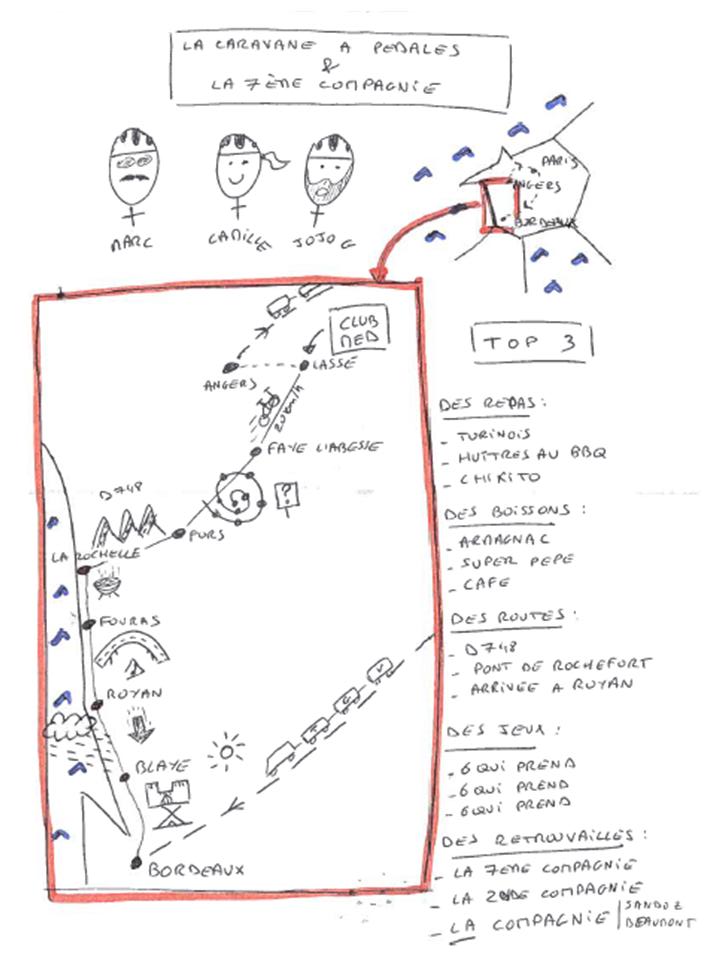 LA CARAVANE A PEDALES
&
LA 7ÈME COMPAGNIE
MARC
CAMILLE
JOJO G
PARIS
ANGERS
BORDEAUX
CLUB
MED
LASSE
ANGERS
20 km/h
FAYE L'ABESSE
?
D748
PURS
LA ROCHELLE
FOURAS
ROYAN
BLAYE
BORDEAUX
TOP 3
DES REPAS :
- TURINOIS
- HUÎTRES AU BBQ
- CHIKITO
DES BOISSONS :
- ARMAGNAC
- SUPER PEPE
- CAFE
DES ROUTES :
- D748
- PONT DE ROCHEFORT
- ARRIVÉE A ROYAN
DES JEUX :
- 6 QUI PREND
- 6 QUI PREND
- 6 QUI PREND
DES RETROUVAILLES :
- LA 7EME COMPAGNIE
- LA 2NDE COMPAGNIE
- LA COMPAGNIE | SANDOZ
BEAUMONT